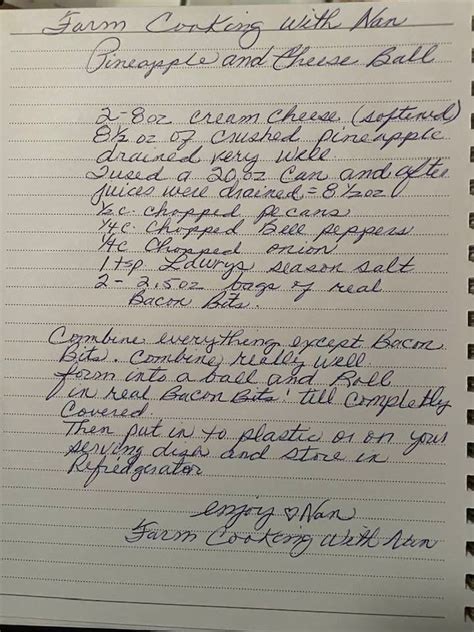 Farm Cooking With Nan
Pineapple and Cheese Ball
2-8oz cream cheese (softened)
8½ oz of crushed pineapple
drained very well
I used a 20 oz can and after
juices were drained = 8½oz
½c. chopped pecans
¼c. Chopped Bell peppers
¼c Chopped onion
1 tsp Lawrys season salt
2 - 2.5oz bags of real
Bacon Bits.
Combine everything except Bacon
Bits. Combine really well
form into a ball and Roll
in real Bacon Bits' till completly
Covered.
Then put in to plastic or on your
serving dish and store in
Refredgerator
enjoy ♡ Nan
Farm Cooking With Nan